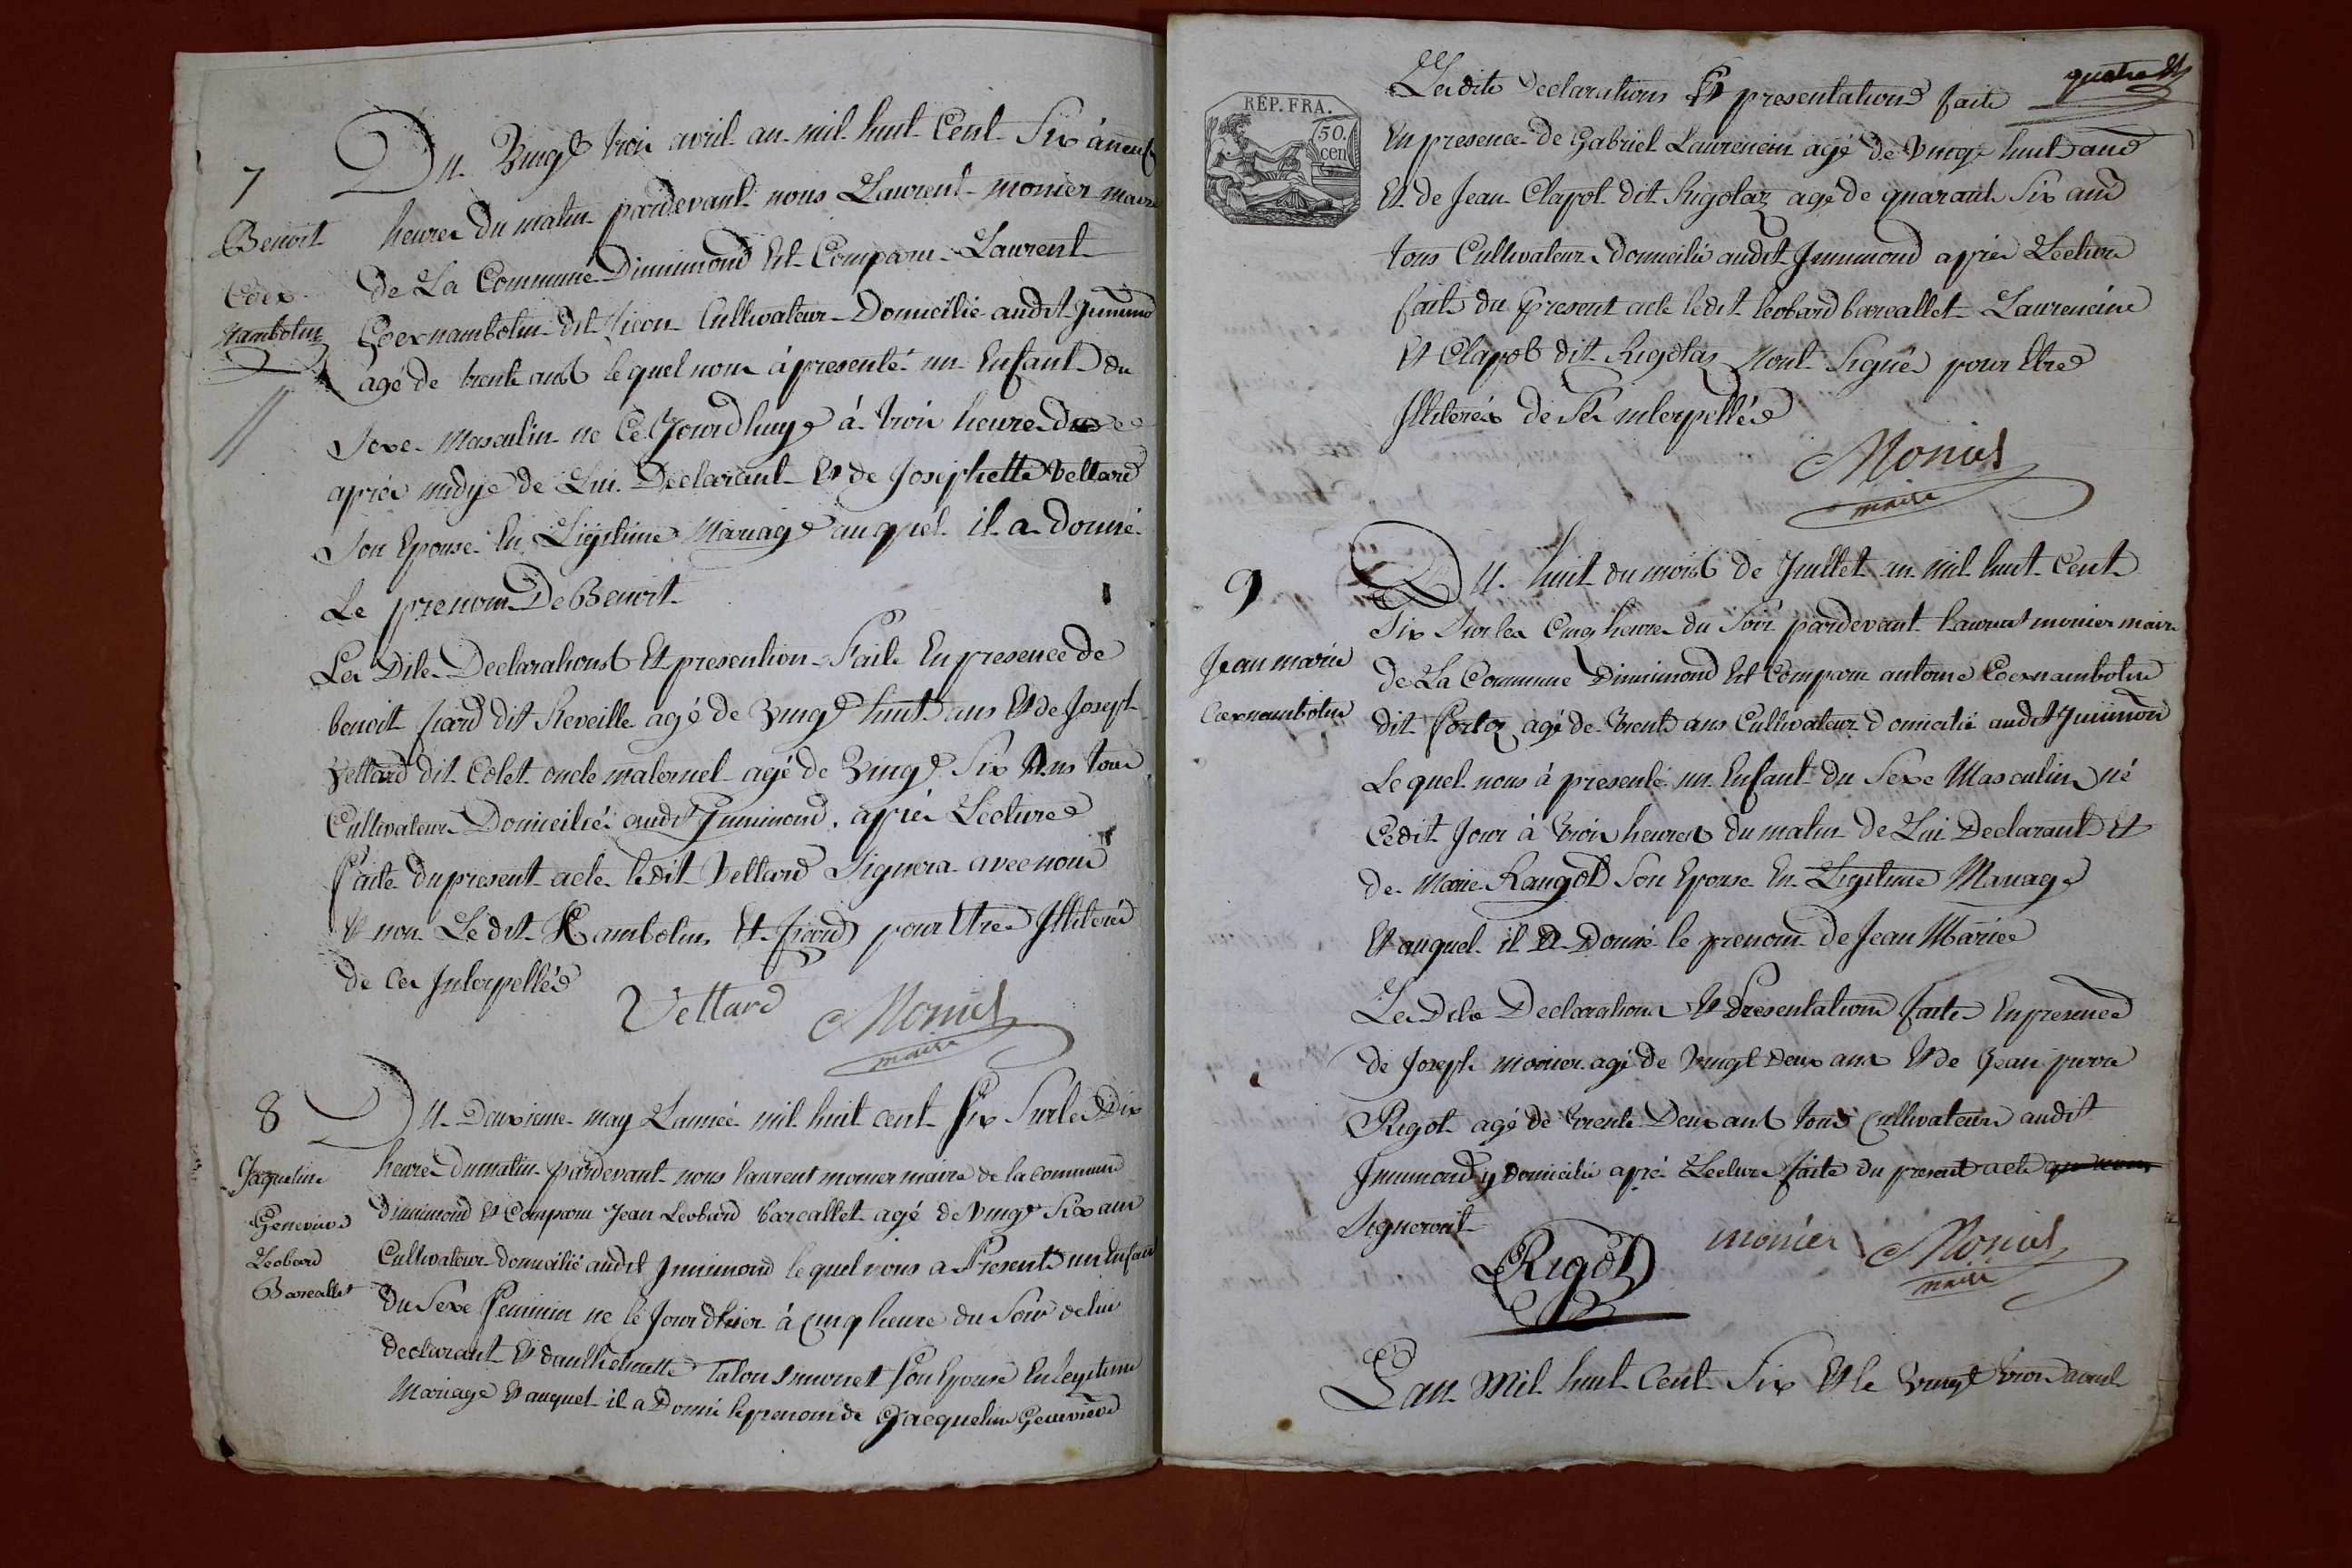 7
Benoit
Coex
nambotin
Du Vingt trois avril an mil huit Cent Six à neuf
heures du matin pardevant nous Laurent monier maire
de La Commune Dinnimond Est Comparu Laurent
Coexnambotin dit Cultivateur Domicilié audit Jnnimond
agé de trente ans lequel nous à presenté un Enfant du
Sexe Masculin ne Ce Jourdhuy à trois heures du
aprés midy de Lui Declarant Et de Josephette Vettard
Son Epouse En Légitime Mariage auquel il a donné
Le prenom De Benoit
Les Dites Declarations Et presention Faite En presence de
benoit dit Reveille agé de Vingt huit ans Et de Joseph
Vettard dit Colet oncle maternel agé de Vingt Six Ans tous
Cultivateurs Domiciliés audit Jnnimond aprés Lecture
faite du present acte ledit Vettard Signera avec nous
Et non Ledit Nambotin Et pour Etre Jlliterés
de Ces Jnterpellés
Vettard Monier
maire
8
Jaqueline
Genevieve
Leobard
Barcallet
Du Deuxieme may Lannée mil huit cent Six Surles Dix
heures dumatin pardevant nous laurent monier maire de la commune
dinnimond Et Comparu Jean Leobard barcallet agé de Vingt Six ans
Cultivateur domicilié audit Jnnimond lequel nous a Presenté un Enfant
du Sexe Feminin ne le Jour dhier à Cinq heure du Soir de lui
declarant Et Talon Simonet Son Epouse En legitime
Mariage Et auquel il a Donné le prenom de Jacqueline Genevieve
quatre
REP. FRA.
50.
cen
Lesdits Declarations Et presentations faite
En presence de Gabriel Laurencin agé de Vingt huit ans
Et de Jean Clapot dit Rigolaz agé de quarante Six ans
tous Cultivateurs domiciliés audit Jnnimond aprés Lecture
faite du present acte ledit leobard barcallet Laurencin
Et Clapot dit Rigolaz Nont Signés pour Etre
Jlliterés de Ce Jnterpellés
Monier
maire
9
Jean marie
Coexnambotin
Du huit du mois de Juillet an mil huit Cent
Six Sur les Cinq heures du Soir pardevant Laurent monier maire
de La Commune Dinnimond Est Comparu antoine Coexnambotin
dit agé de trente ans Cultivateur domicilié audit Jnnimond
Lequel nous à presenté un Enfant du Sexe Masculin né
Cedit Jour à trois heures du matin de Lui Declarant Et
de Marie Rangot Son Epouse En Légitime Mariage
Et auquel il A Donné le prenom de Jean Marie
Les Dites Declarations Et Presentations faites En presence
de Joseph monier agé de Vingt Deux ans Et de Jean pierre
Rigot agé de trente Deux ans tous Cultivateurs audit
Jnnimond y domiciliés aprés Lecture faite du present acte
Signeront
Rigot monier Monier
maire
Lan Mil huit Cent Six Et le Vingt trois avril